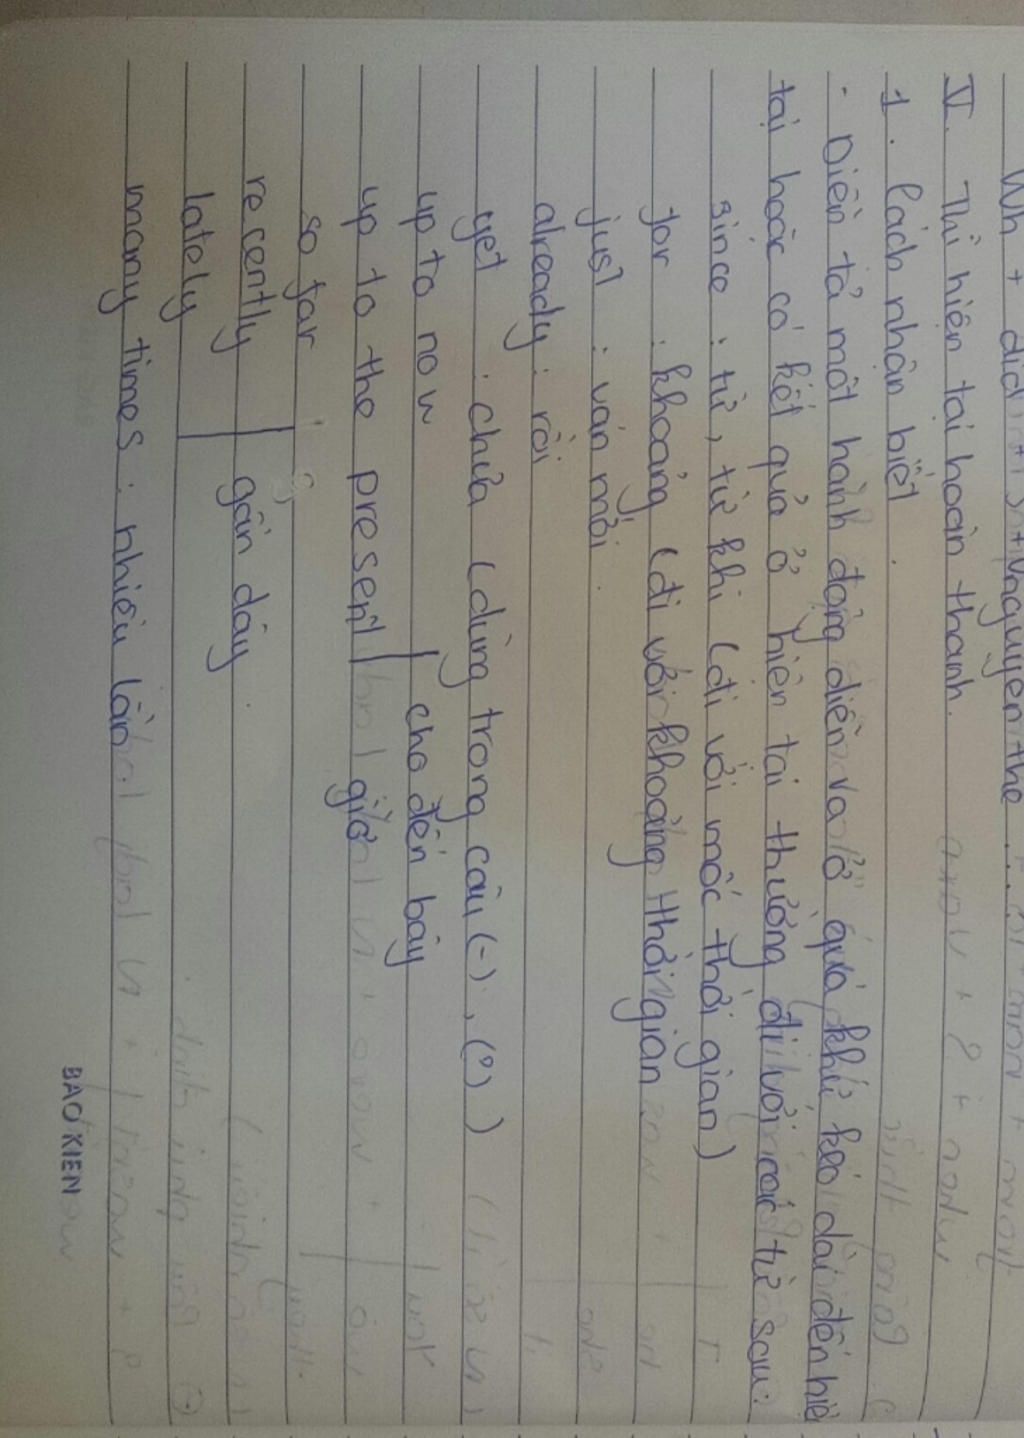 Wh + did + S + V nguyên the ...
V. Thì hiện tại hoàn thành.
1. Cách nhận biết.
- Diễn tả một hành động diễn ra ở quá khứ kéo dài đến hiện
tại hoặc có kết quả ở hiện tại thường đi với các từ sau:
since : từ, từ khi (đi với mốc thời gian)
for : khoảng (đi với khoảng thời gian
just : vừa mới.
already : rồi
yet : chưa (dùng trong câu (-), (?))
up to now
cho đến bây
up to the present
giờ
so far
recently
gần đây.
lately
many times : nhiều lần
BAO KIEN